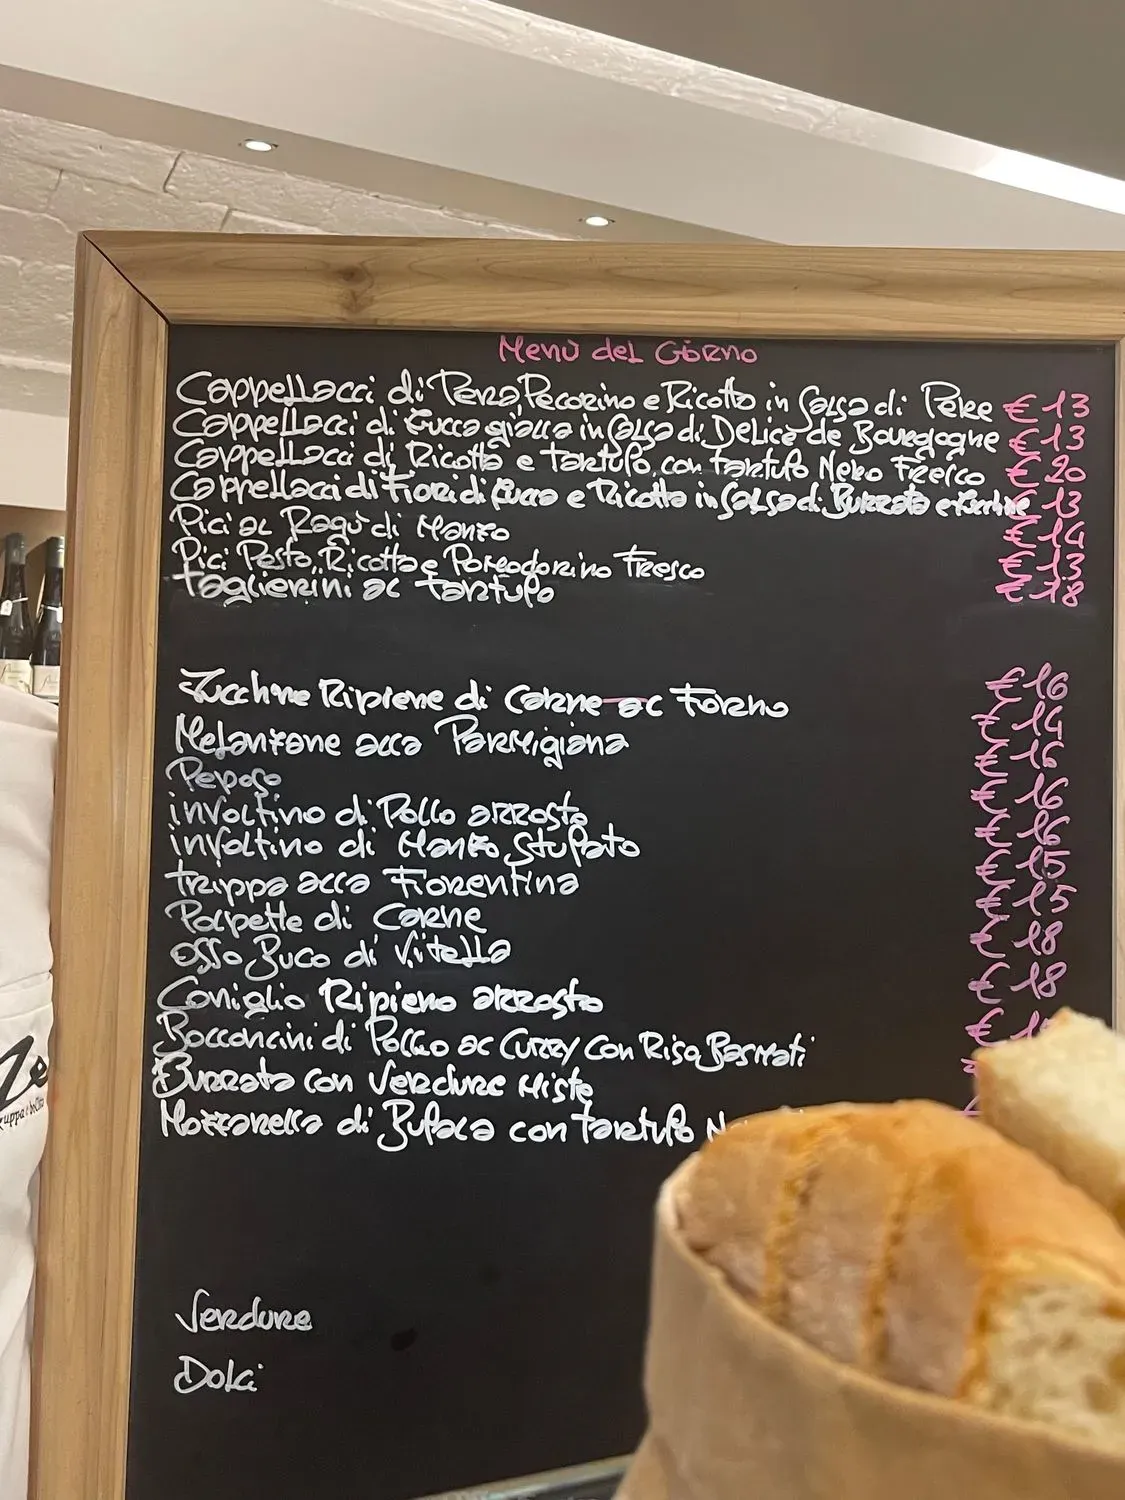 Menù del Giorno
Cappellacci di Pera, Pecorino e Ricotta in Salsa di Pere € 13
Cappellacci di Zucca gialla in Salsa di Delice de Bourgogne € 13
Cappellacci di Ricotta e tartufo con tartufo Nero Fresco € 20
Cappellacci di Fiori di Zucca e Ricotta in Salsa di Burrata e Zucchine € 13
Pici al Ragù di Manzo € 14
Pici Pesto, Ricotta e Pomodorino Fresco € 13
Taglierini al tartufo € 18
Zucchine Ripiene di Carne al Forno € 16
Melanzane alla Parmigiana € 14
Peposo € 16
involtino di Pollo arrosto € 16
involtino di Manzo Stufato € 16
trippa alla Fiorentina € 15
Polpette di Carne € 15
Osso Buco di Vitella € 18
Coniglio Ripieno arrosto € 18
Bocconcini di Pollo al Curry con Riso Basmati €
Burrata con Verdure Miste
Mozzarella di Bufala con tartufo
Verdure
Dolci